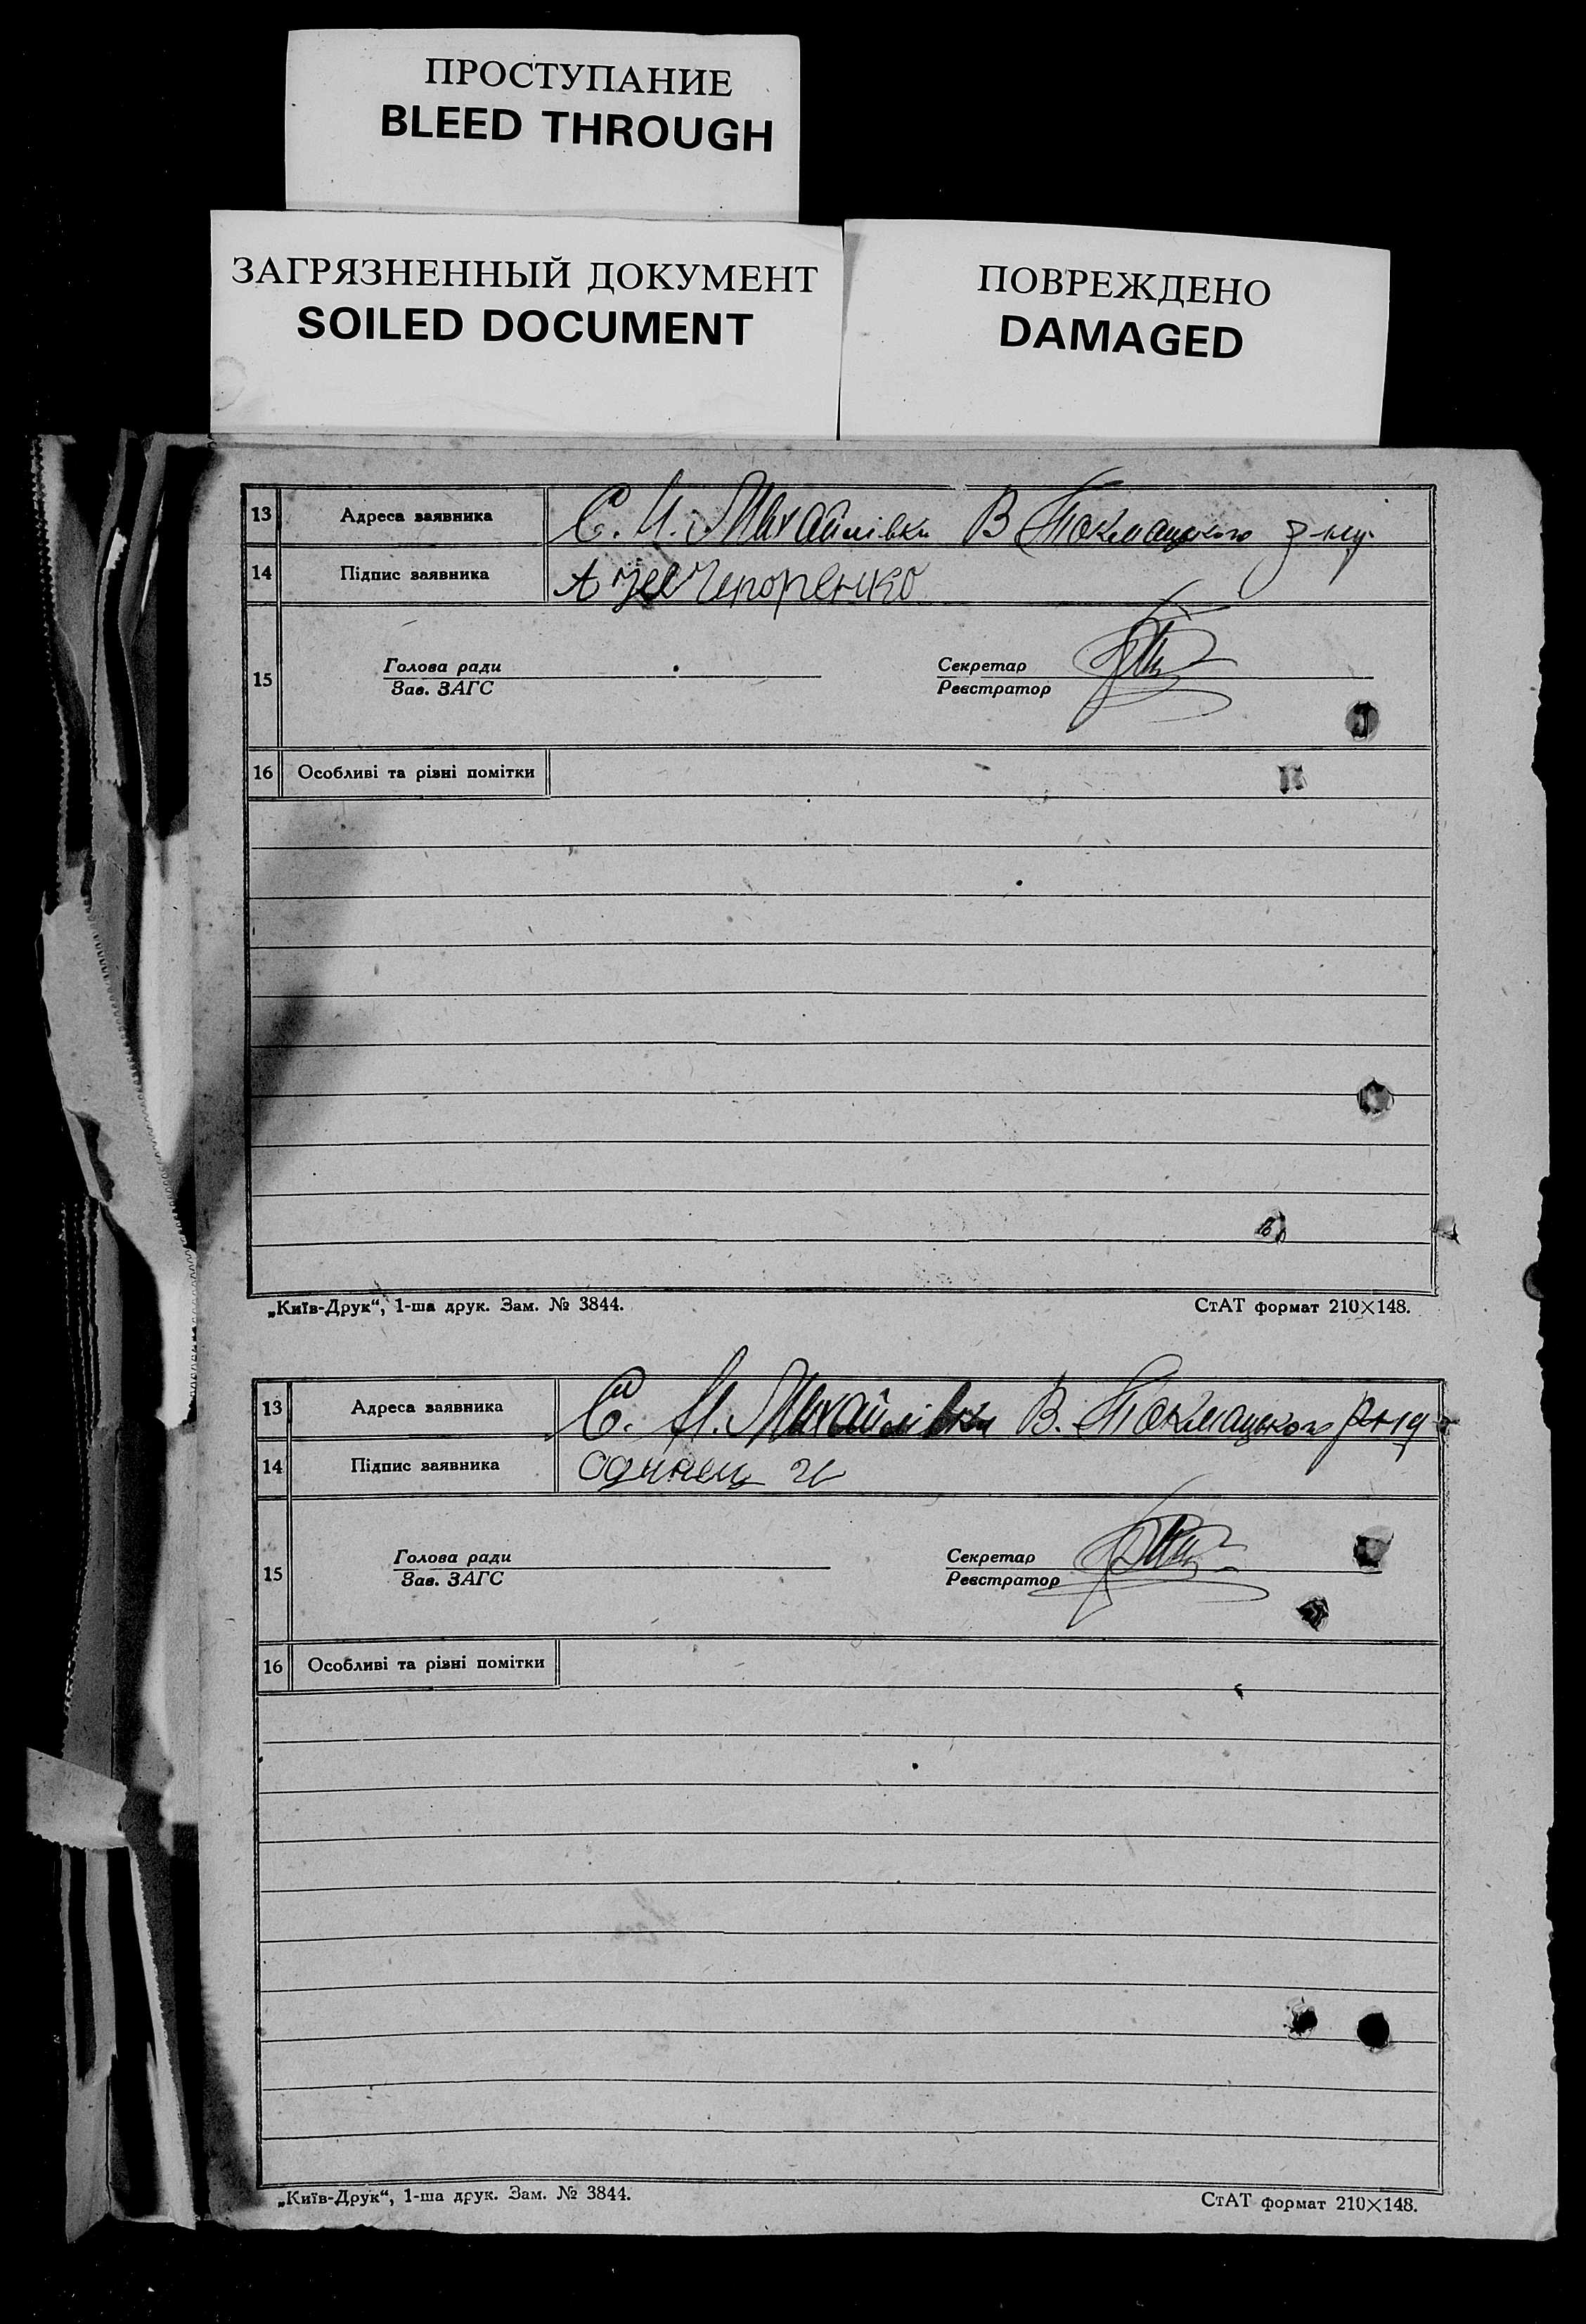 ПРОСТУПАНИЕ
BLEED THROUGH
ЗАГРЯЗНЕННЫЙ ДОКУМЕНТ
SOILED DOCUMENT
ПОВРЕЖДЕНО
DAMAGED
13 Адреса заявника С. Н. Михайлівки В Токмацького р-ну
14 Підпис заявника
15 Голова ради
Зав. ЗАГС
Секретар
Реєстратор
16 Особливі та різні помітки
„Київ-Друк“, 1-ша друк. Зам. № 3844. СтАТ формат 210×148.
13 Адреса заявника С. Н. Михайлівки В. Токмацького р-ну
14 Підпис заявника Одинец
15 Голова ради
Зав. ЗАГС
Секретар
Реєстратор
16 Особливі та різні помітки
„Київ-Друк“, 1-ша друк. Зам. № 3844. СтАТ формат 210×148.